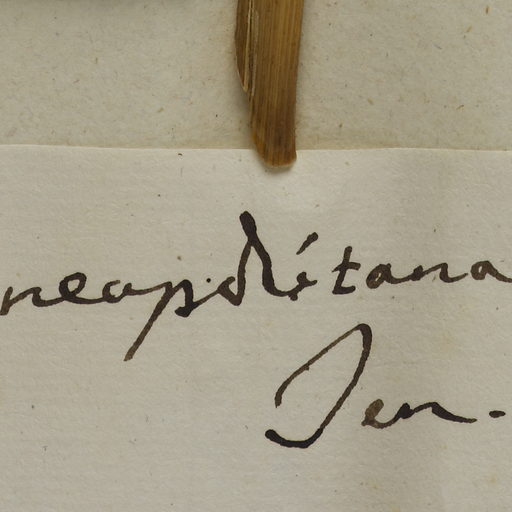 neapolitana
Ten.